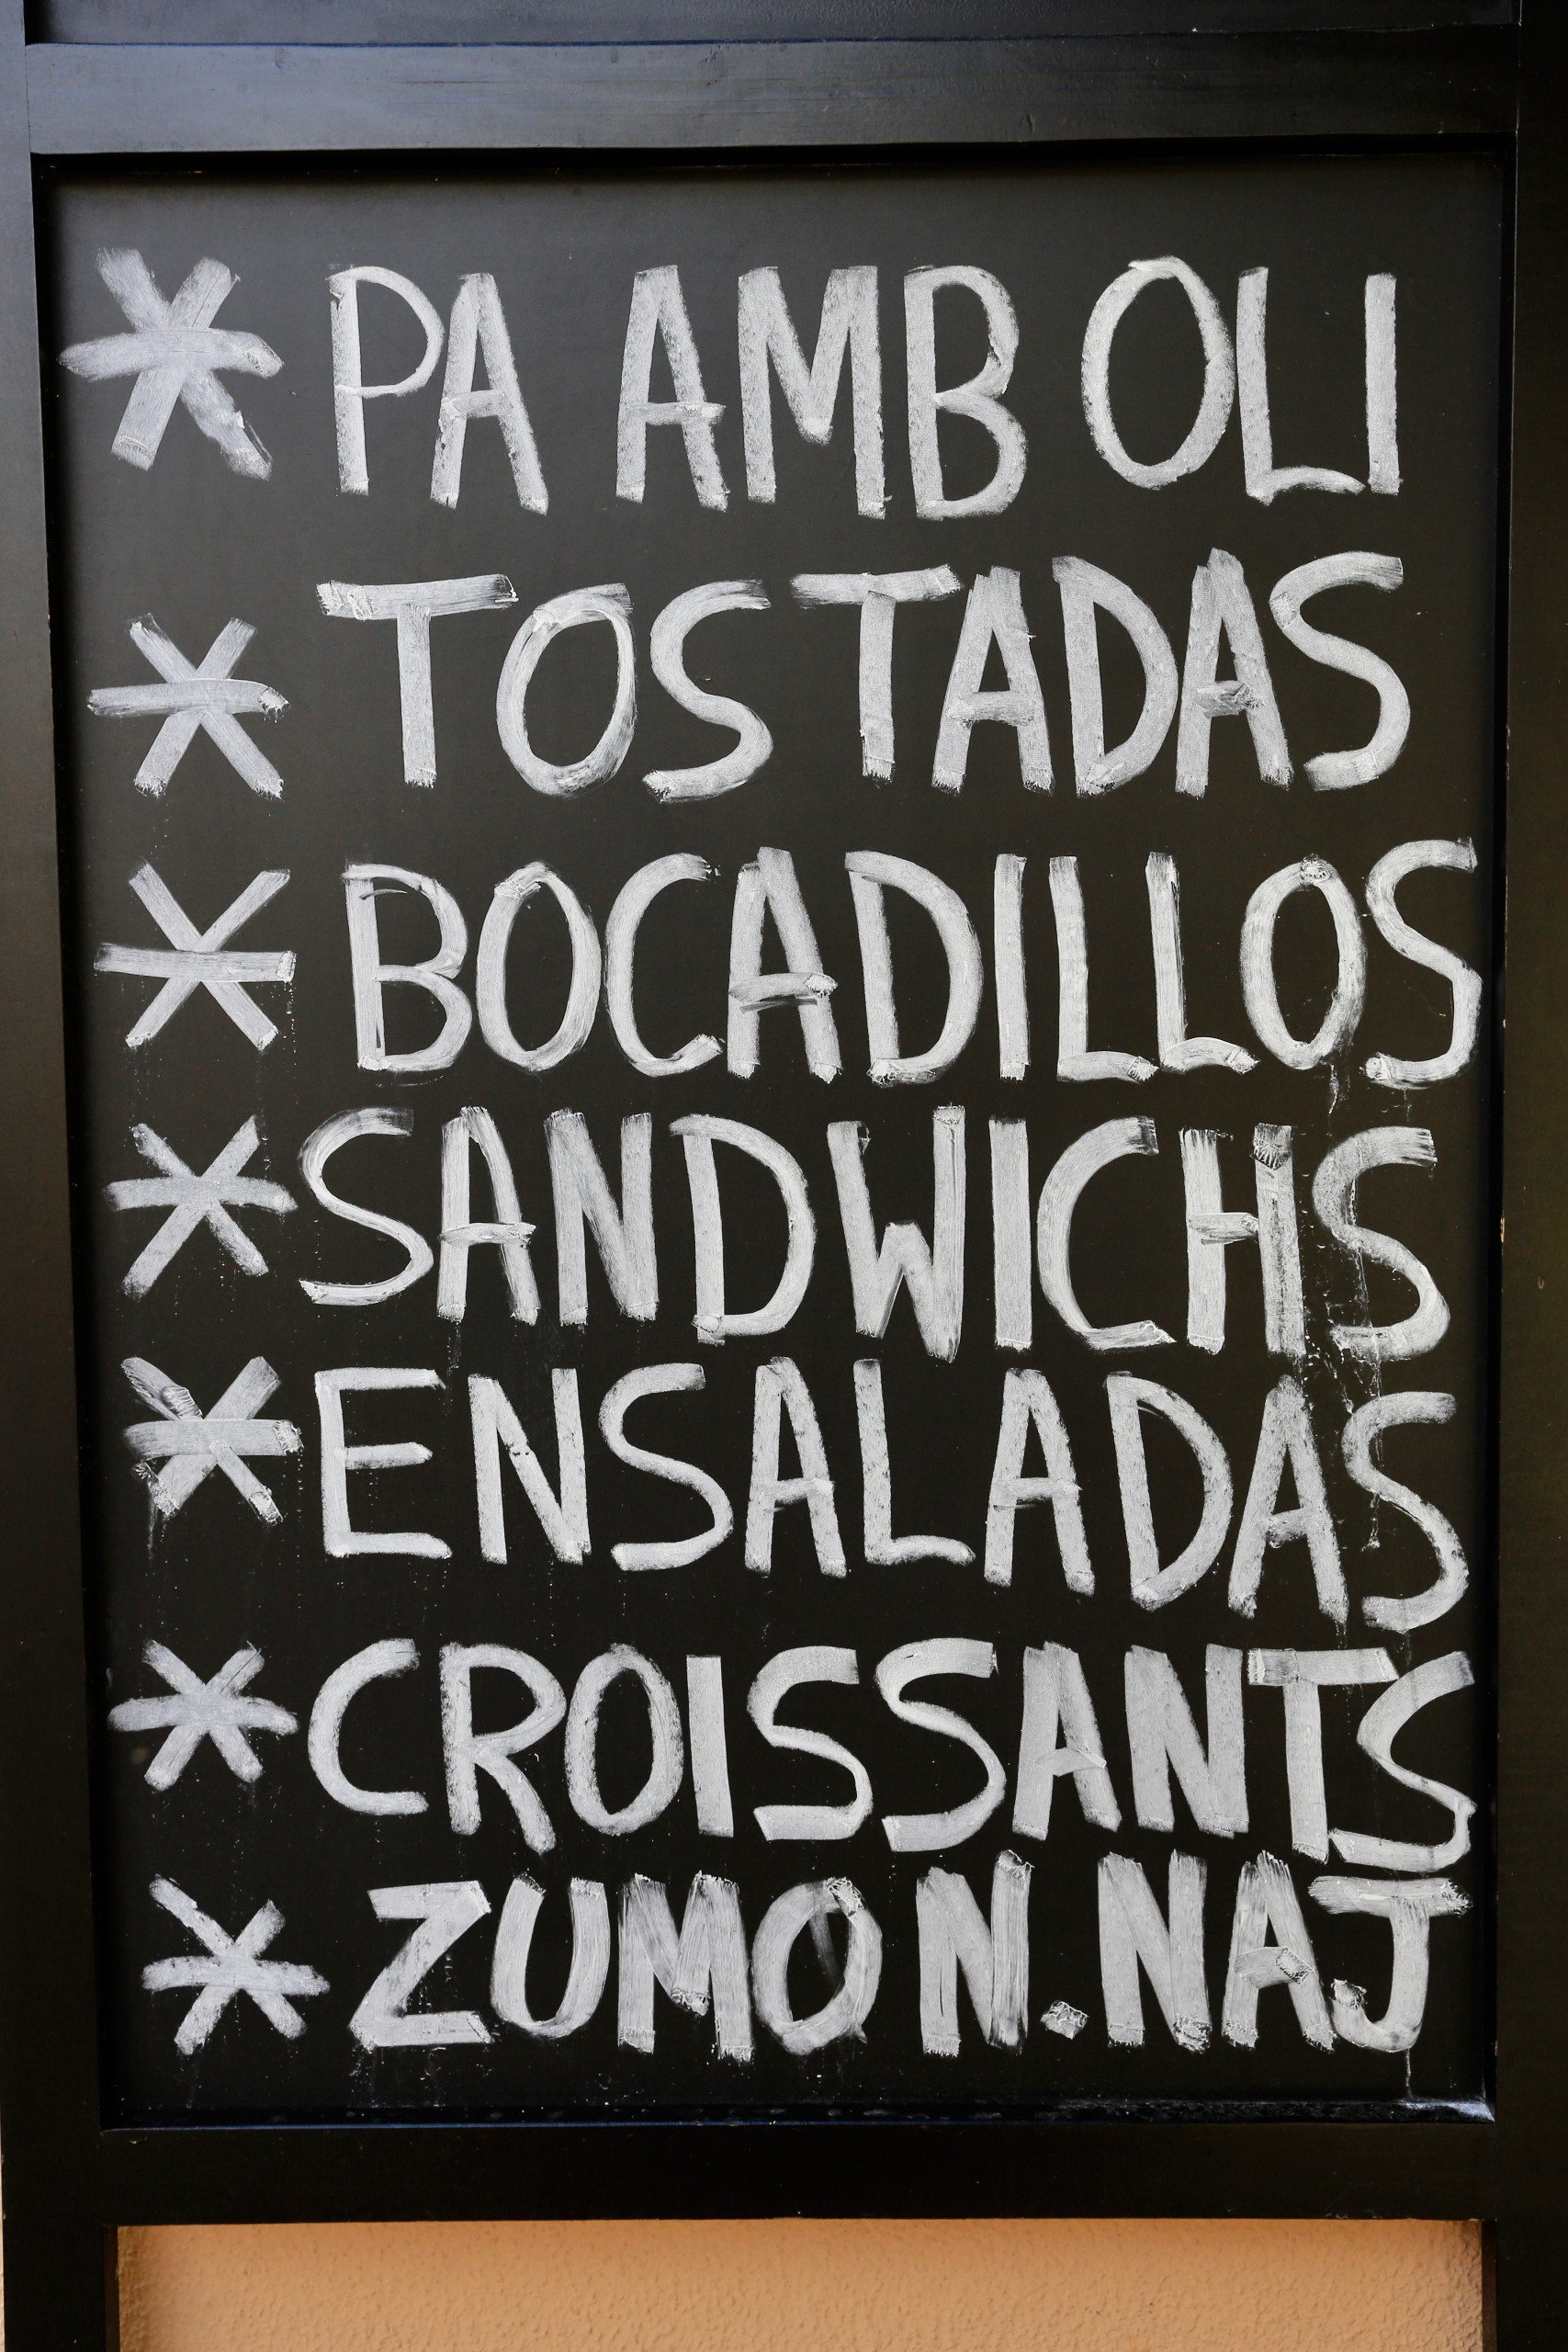 * PA AMB OLI
* TOSTADAS
* BOCADILLOS
* SANDWICHS
* ENSALADAS
* CROISSANTS
* ZUMO N.NAJ